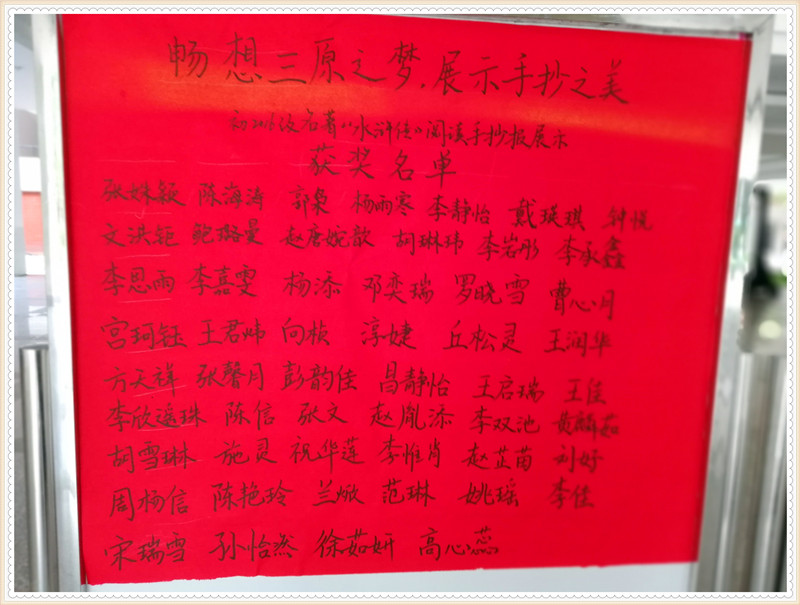 畅想三原之梦,展示手抄之美
初2016级名著《水浒传》阅读手抄报展示
获奖名单
张姝颖 陈海涛 郭枭 杨雨寒 李静怡 戴瑛琪 钟悦
文洪钜 鲍璐曼 赵唐婉歆 胡琳玮 李岩彤 李承鑫
李思雨 李嘉雯 杨添 邓奕瑞 罗晓雪 曹心月
宫珂钰 王君炜 向桢 淳婕 丘松灵 王润华
方天祥 张馨月 彭韵佳 昌静怡 王启瑞 王佳
李欣遥珠 陈信 张文 赵胤添 李双池 黄麟茹
胡雪琳 施灵 祝华莲 李惟肖 赵芷苗 刘妤
周杨信 陈艳玲 兰焮 范琳 姚瑶 李佳
宋瑞雪 孙怡然 徐茹妍 高心蕊